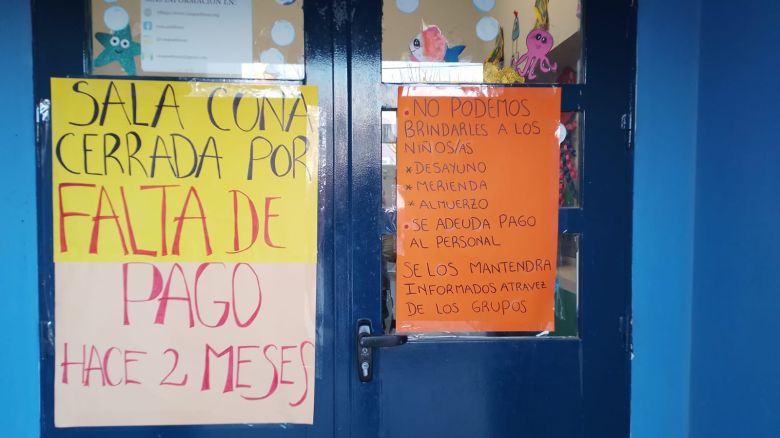 MAS INFORMACION EN:
SALA CUNA
CERRADA POR
FALTA DE
PAGO
HACE 2 MESES
• NO PODEMOS
BRINDARLES A LOS
NIÑOS/AS
* DESAYUNO
* MERIENDA
* ALMUERZO
• SE ADEUDA PAGO
AL PERSONAL
SE LOS MANTENDRA
INFORMADOS ATRAVEZ
DE LOS GRUPOS